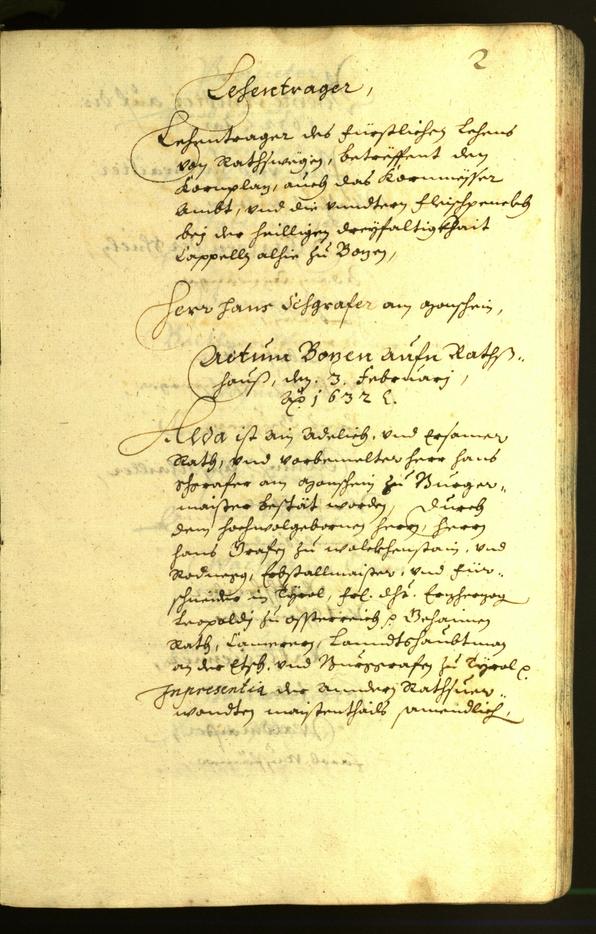 2
Lehentrager,
Lehentrager des fürstlichen Lehens
von Rathswegen, betreffent den
Kornplaz, auch das Kornmesser
Ambt, und die unndtern Fleischpennckh
bej der heilligen dreyfaltigkhait
Cappelln alhie zu Bozen,
Herr Hans Schgrafer am
Actum Bozen aufm Raths-
hauß, den. 3. Februarj,
Ao 1632.
Alda ist ain Adelich. und Ersamer
Rath, und vorbemelter Herr Hans
Schgrafer am zu Burger-
maister bestät worden, Durch
dem hochwolgebornen herrn, herrn
Hans Grafen zu Wolckhenstain, und
Rodnegg, Erbstallmaister, und Für-
schneider in Tyrol, Frl. Dht. Erzherzog
Leopoldj zu Össterreich Gehaimen
Rath, Camerern, Lanndtshaubtman
an der Etsch, und Burggrafen zu Tyrol
In presentia der anndern Rathsver-
wondten maistenthails samendlich,